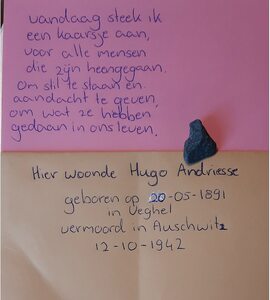 vandaag steek ik
een kaarsje aan,
voor alle mensen
die zijn heengegaan.
Om stil te staan en
aandacht te geven,
om wat ze hebben
gedaan in ons leven.
Hier woonde Hugo Andriesse
geboren op 20-05-1891
in Veghel
vermoord in Auschwitz
12-10-1942